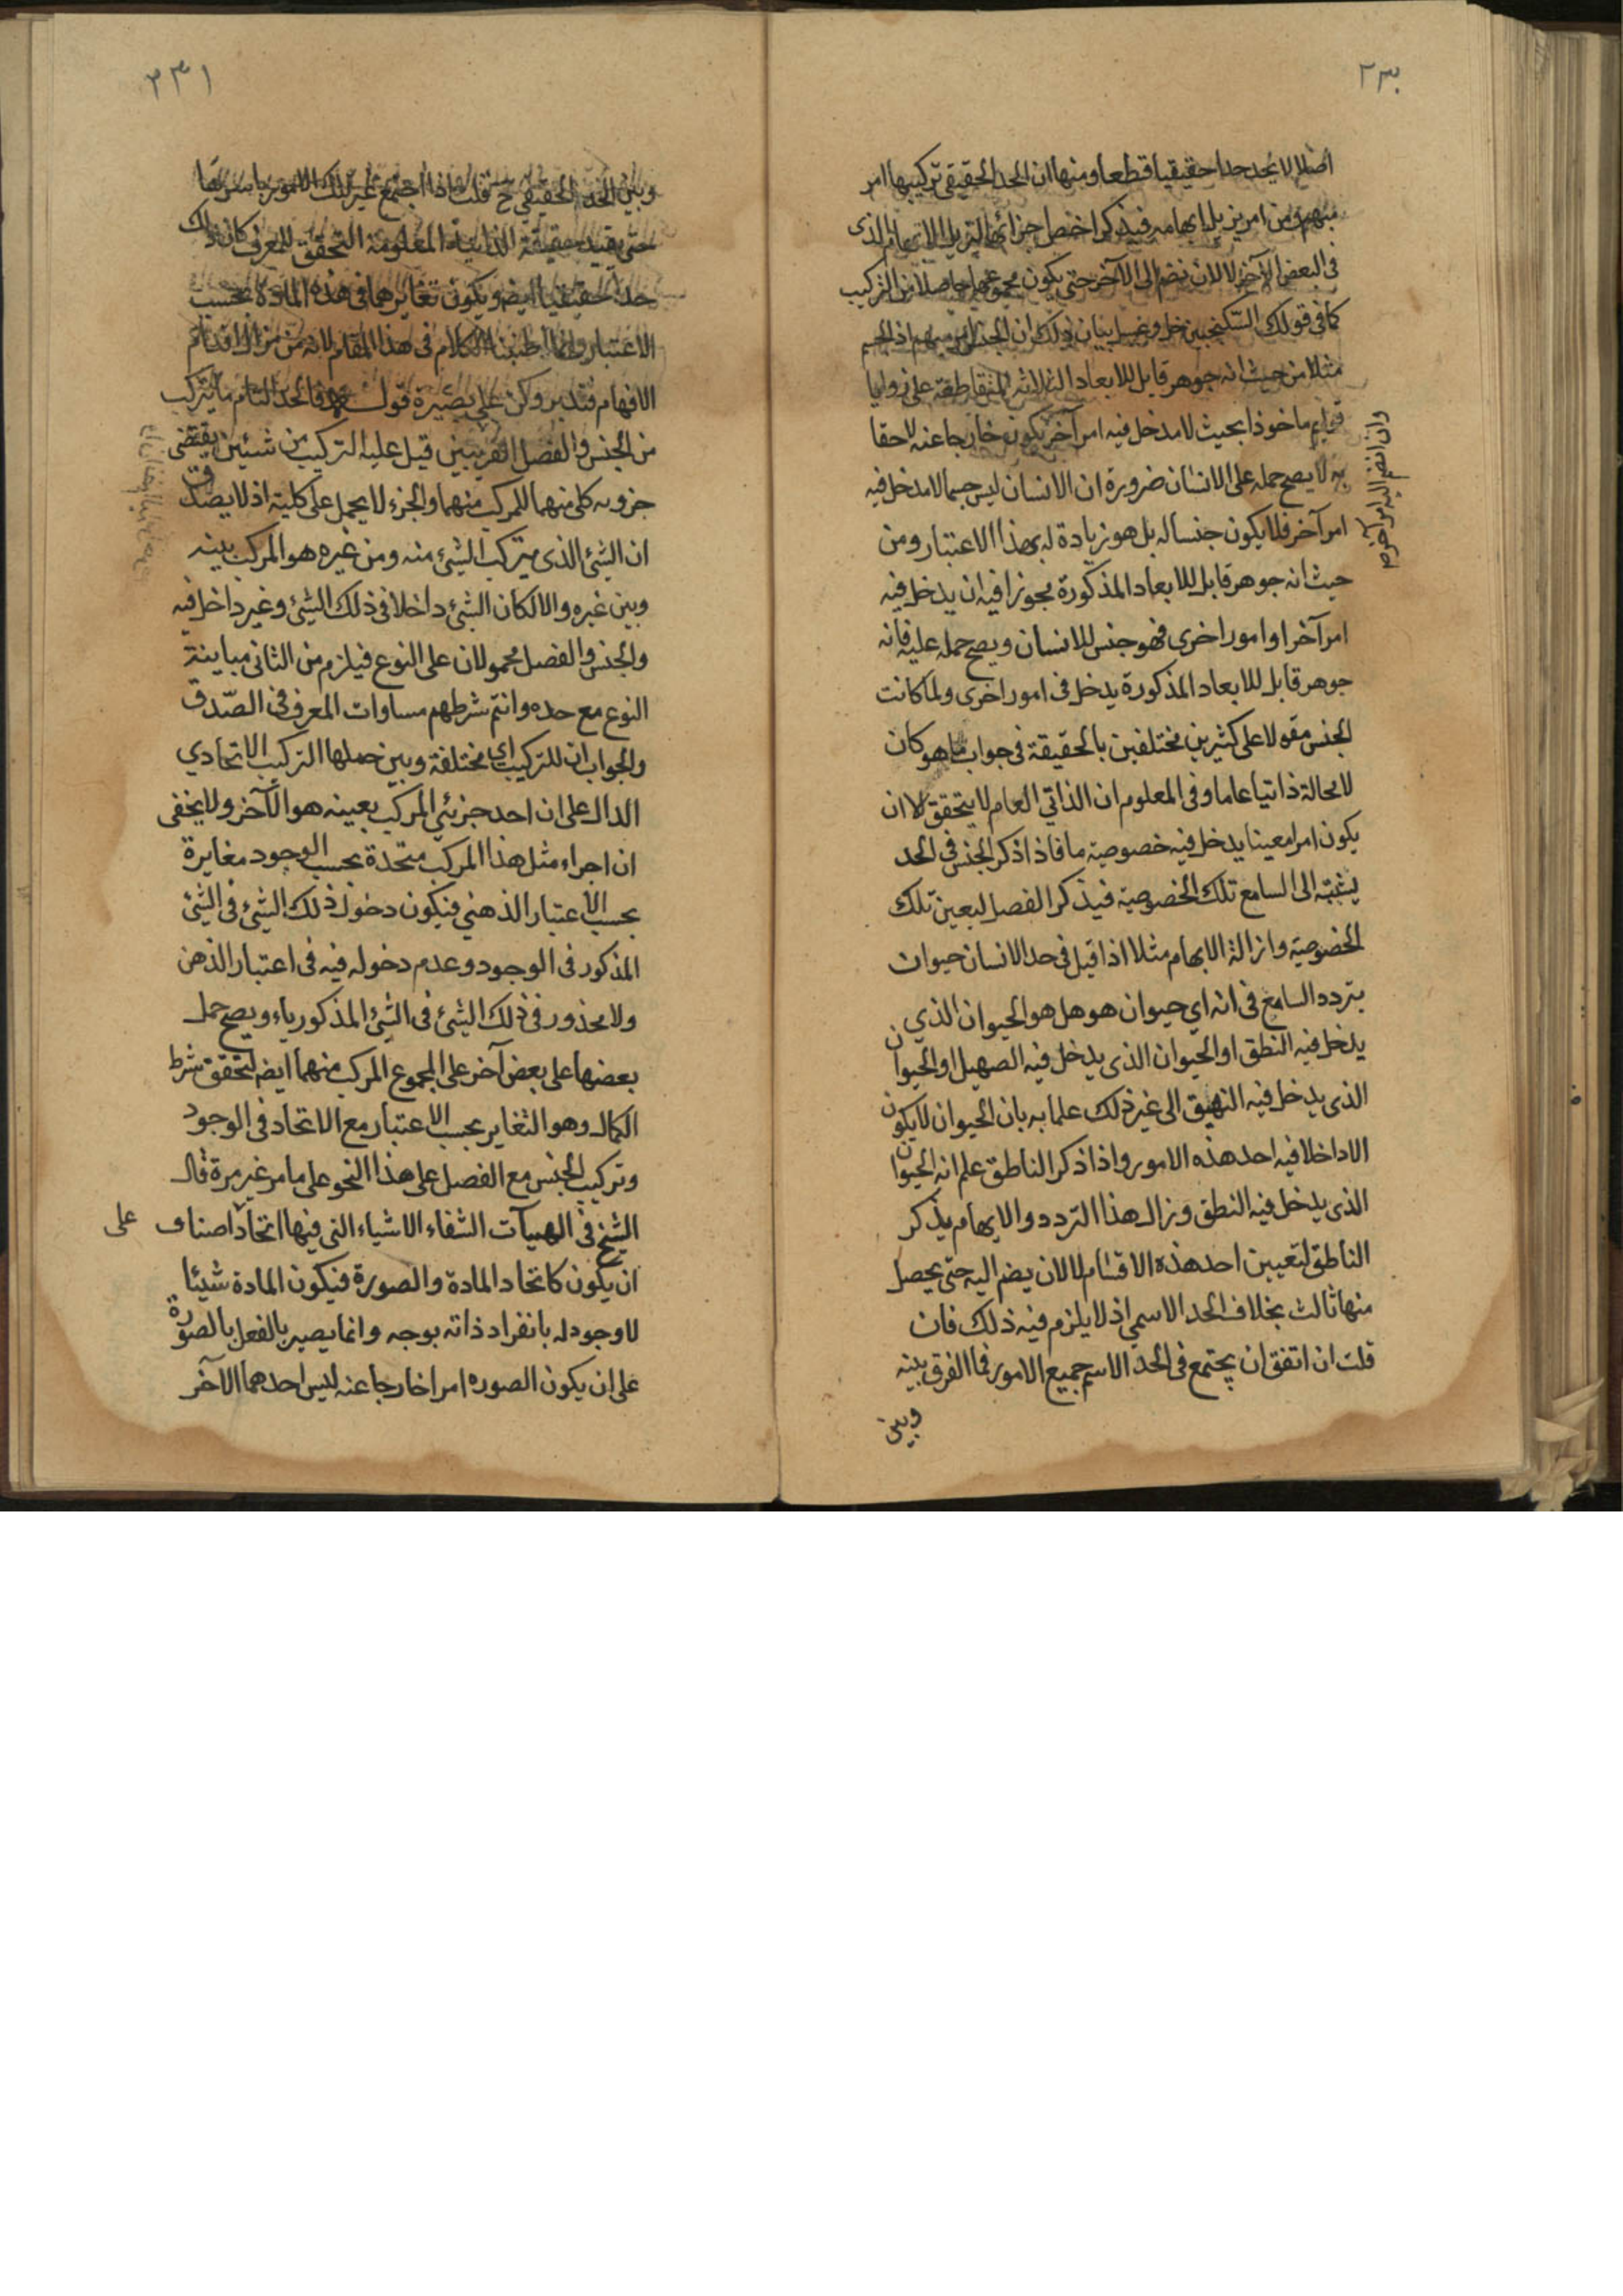 ٢٣٠
اصلا لا يحد حدا حقيقيا قطعا ومنها ان الحد الحقيقي تركيبها امر
مبهم من امرين بل ابهامه فيذكر اخص اجزائها لتزيل الابهام الذى
فى البعض الآخر لا لان نضم الى الآخر حتى يكون مجموعهما حاصلا من التركيب
كما فى قولك السكنجبين خل وعسل بيان ذلك ان الجنس امر مبهم اذ الجسم
مثلا من حيث انه جوهر قابل للابعاد الثلاثة المتقاطعة على زوايا
قوايم ماخوذا بحيث لا مدخل فيه امر آخر يكون خارجا عنه لاحقا
به لا يصح حمله على الانسان ضرورة ان الانسان ليس جسما لا مدخل فيه
امر آخر فلا يكون جنسا له بل هو زيادة له بهذا الاعتبار ومن
حيث انه جوهر قابل للابعاد المذكورة مجوزا فيه ان يدخل فيه
امر آخر او امور اخرى فهو جنس للانسان ويصح حمله عليه فانه
جوهر قابل للابعاد المذكورة يدخل فى امور اخرى ولما كانت
الجنس مقولا على كثيرين مختلفين بالحقيقة فى جواب ما هو كان
لا محالة ذاتيا عاما وفى المعلوم ان الذاتي العام لا يتحقق الا ان
يكون امرا معينا يدخل فيه خصوصية ما فاذا ذكر الجنس فى الحد
الى السامع تلك الخصوصية فيذكر الفصل لبعين تلك
الخصوصية وازالة الابهام مثلا اذا قيل فى حد الانسان حيوان
يتردد السامع فى انه اي حيوان هو هل هو الحيوان الذي
يدخل فيه النطق او الحيوان الذى يدخل فيه الصهيل او الحيوان
الذى يدخل فيه النهيق الى غير ذلك علما به بان الحيوان لا يكون
الا داخلا فيه احد هذه الامور واذا ذكر الناطق علم انه الحيوان
الذى يدخل فيه النطق وزال هذا التردد والابهام يذكر
الناطق لتعيين احد هذه الاقسام لا لان يضم اليه حتى يحصل
منها ثالث بخلاف الحد الاسمي اذ لا يلزم فيه ذلك فان
قلت ان اتفق ان يجتمع فى الحد الاسم جميع الامور فما الفرق بينه
وبين
وان انضم اليه امر آخر
٢٣١
وبين الحد الحقيقي ح قلت اذا اجتمع غير تلك الامور باسرها
حتى يفيد حقيقة الذاتية المعلومة التحقق للمعرف كان ذلك
حدا حقيقيا ايضا ويكون تغايرهما فى هذه المادة بحسب
الاعتبار وانما اطنبنا الكلام فى هذا المقام لانه من مزال اقدام
الافهام فتدبر وكن على بصيرة قوله فالحد التام ما يتركب
من الجنس والفصل القريبين قيل عليه التركيب من شيئين يقتضى
جزويه كل منهما للمركب منهما والجزء لا يحمل على كلية اذ لا يصدق
ان الشئ الذى يتركب الشئ منه ومن غيره هو المركب بينه
وبين غيره والا لكان الشئ داخلا فى ذلك الشئ وغير داخل فيه
والجنس والفصل محمولان على النوع فيلزم من الثانى مباينة
النوع مع حده وانتم شرطهم مساوات المعرف فى الصدق
والجواب ان للتركيب مختلفة وبين حملها التركيب الاتحادي
الدال على ان احد جزئي المركب بعينه هو الآخر ولا يخفى
ان اجراء مثل هذا المركب متحدة بحسب الوجود مغايرة
بحسب الاعتبار الذهني فيكون دخول ذلك الشئ فى الشئ
المذكور فى الوجود وعدم دخوله فيه فى اعتبار الذهن
ولا محذور فى ذلك الشئ فى الشئ المذكور ويصح حمل
بعضها على بعض آخر على المجموع المركب منهما ايضا لتحقق شرط
الكمال وهو التغاير بحسب الاعتبار مع الاتحاد فى الوجود
وتركيب الجنس مع الفصل على هذا النحو على ما مر غير مرة قال
الشيخ فى الهيآت الشفاء الاشياء التى فيها اتحاد اصناف على
ان يكون كاتحاد المادة والصورة فيكون المادة شيئا
لا وجود له بانفراد ذاته بوجه وانما يصير بالفعل بالصورة
على ان يكون الصوره امرا خارجا عنه ليس احدهما الآخر